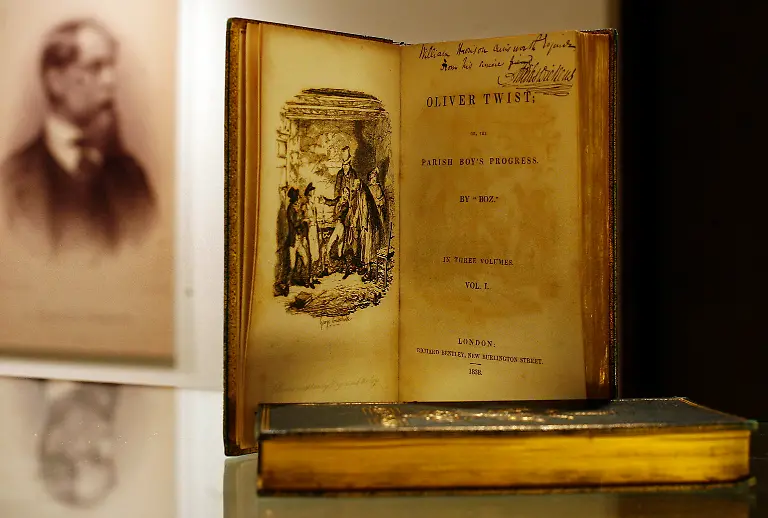 William Harrison Ainsworth Esquire
From his sincere friend
Charles Dickens
OLIVER TWIST;
OR, THE
PARISH BOY'S PROGRESS.
BY "BOZ."
IN THREE VOLUMES.
VOL. I.
LONDON:
RICHARD BENTLEY, NEW BURLINGTON STREET.
1838.
George Cruikshank